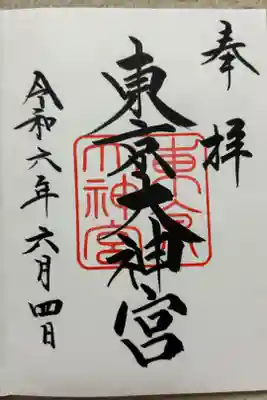 奉拝
東京大神宮
東京大神宮
令和六年六月四日